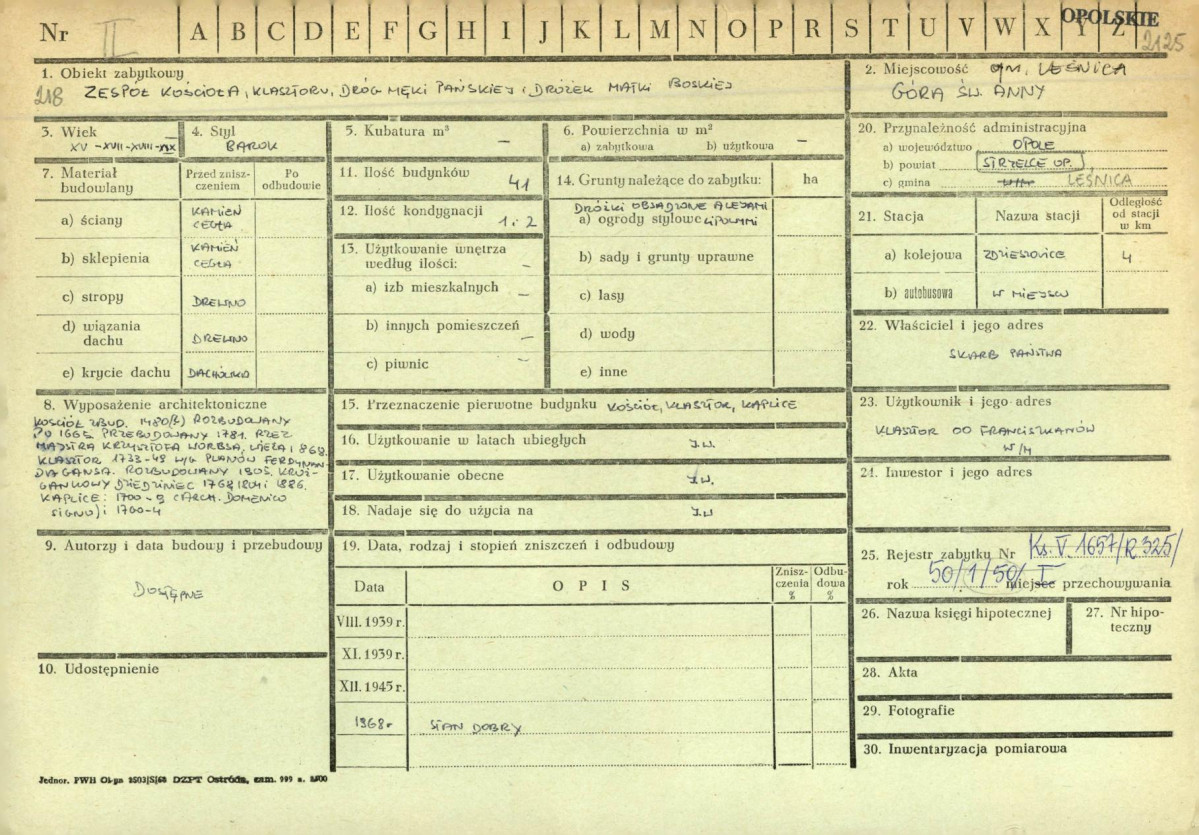 OPOLSKIE
Nr II A B C D E F G H I J K L M N O P R S T U V W X Y Z 2125
1. Obiekt zabytkowy
218 ZESPÓŁ KOŚCIOŁA, KLASZTORU, DRÓG MĘKI PAŃSKIEJ I DRÓŻEK MATKI BOSKIEJ
2. Miejscowość gm. LEŚNICA
GÓRA ŚW. ANNY
3. Wiek
XV-XVII-XVIII-XIX
4. Styl
BAROK
5. Kubatura m³
—
6. Powierzchnia w m²
a) zabytkowa b) użytkowa —
7. Materiał budowlany
Przed zniszczeniem
Po odbudowie
a) ściany KAMIEŃ CEGŁA
b) sklepienia KAMIEŃ CEGŁA
c) stropy DREWNO
d) wiązania dachu DREWNO
e) krycie dachu DACHÓWKA
11. Ilość budynków 41
12. Ilość kondygnacji 1 i 2
13. Użytkowanie wnętrza według ilości: —
a) izb mieszkalnych —
b) innych pomieszczeń —
c) piwnic —
14. Grunty należące do zabytku: ha
DRÓŻKI OBSADZONE ALEJAMI
a) ogrody stylowe LIPOWYMI
b) sady i grunty uprawne
c) lasy
d) wody
e) inne
20. Przynależność administracyjna
a) województwo OPOLE
b) powiat STRZELCE OP.
c) gmina LEŚNICA
21. Stacja Nazwa stacji Odległość od stacji w km
a) kolejowa ZDZIESZOWICE 4
b) autobusowa W MIEJSCU
22. Właściciel i jego adres
SKARB PAŃSTWA
8. Wyposażenie architektoniczne
KOŚCIÓŁ ZBUD. 1480(?) ROZBUDOWANY
PO 1665 PRZEBUDOWANY 1781. PRZEZ
MAJSTRA KRZYSZTOFA WORBSA, WIEŻA 1868.
KLASZTOR 1733-49 W/G PLANÓW FERDYNAN-
DA GANSA. ROZBUDOWANY 1905. KRUŻ-
GANKOWY DZIEDZINIEC 1768 1804 i 1886.
KAPLICE: 1700-9 (ARCH. DOMENICO
SIGNO) i 1760-4
15. Przeznaczenie pierwotne budynku KOŚCIÓŁ, KLASZTOR, KAPLICE
16. Użytkowanie w latach ubiegłych J.W.
17. Użytkowanie obecne J.W.
18. Nadaje się do użycia na J.W
23. Użytkownik i jego adres
KLASZTOR OO FRANCISZKANÓW
W/M
24. Inwestor i jego adres
9. Autorzy i data budowy i przebudowy
DOSTĘPNE
10. Udostępnienie
19. Data, rodzaj i stopień zniszczeń i odbudowy
Data OPIS Zniszczenia % Odbudowa %
VIII. 1939 r.
XI. 1939 r.
XII. 1945 r.
1968 r STAN DOBRY
25. Rejestr zabytku Nr Ks. V. 1657/R 325/
rok 50/1/50/I miejsce przechowywania
26. Nazwa księgi hipotecznej
27. Nr hipoteczny
28. Akta
29. Fotografie
30. Inwentaryzacja pomiarowa